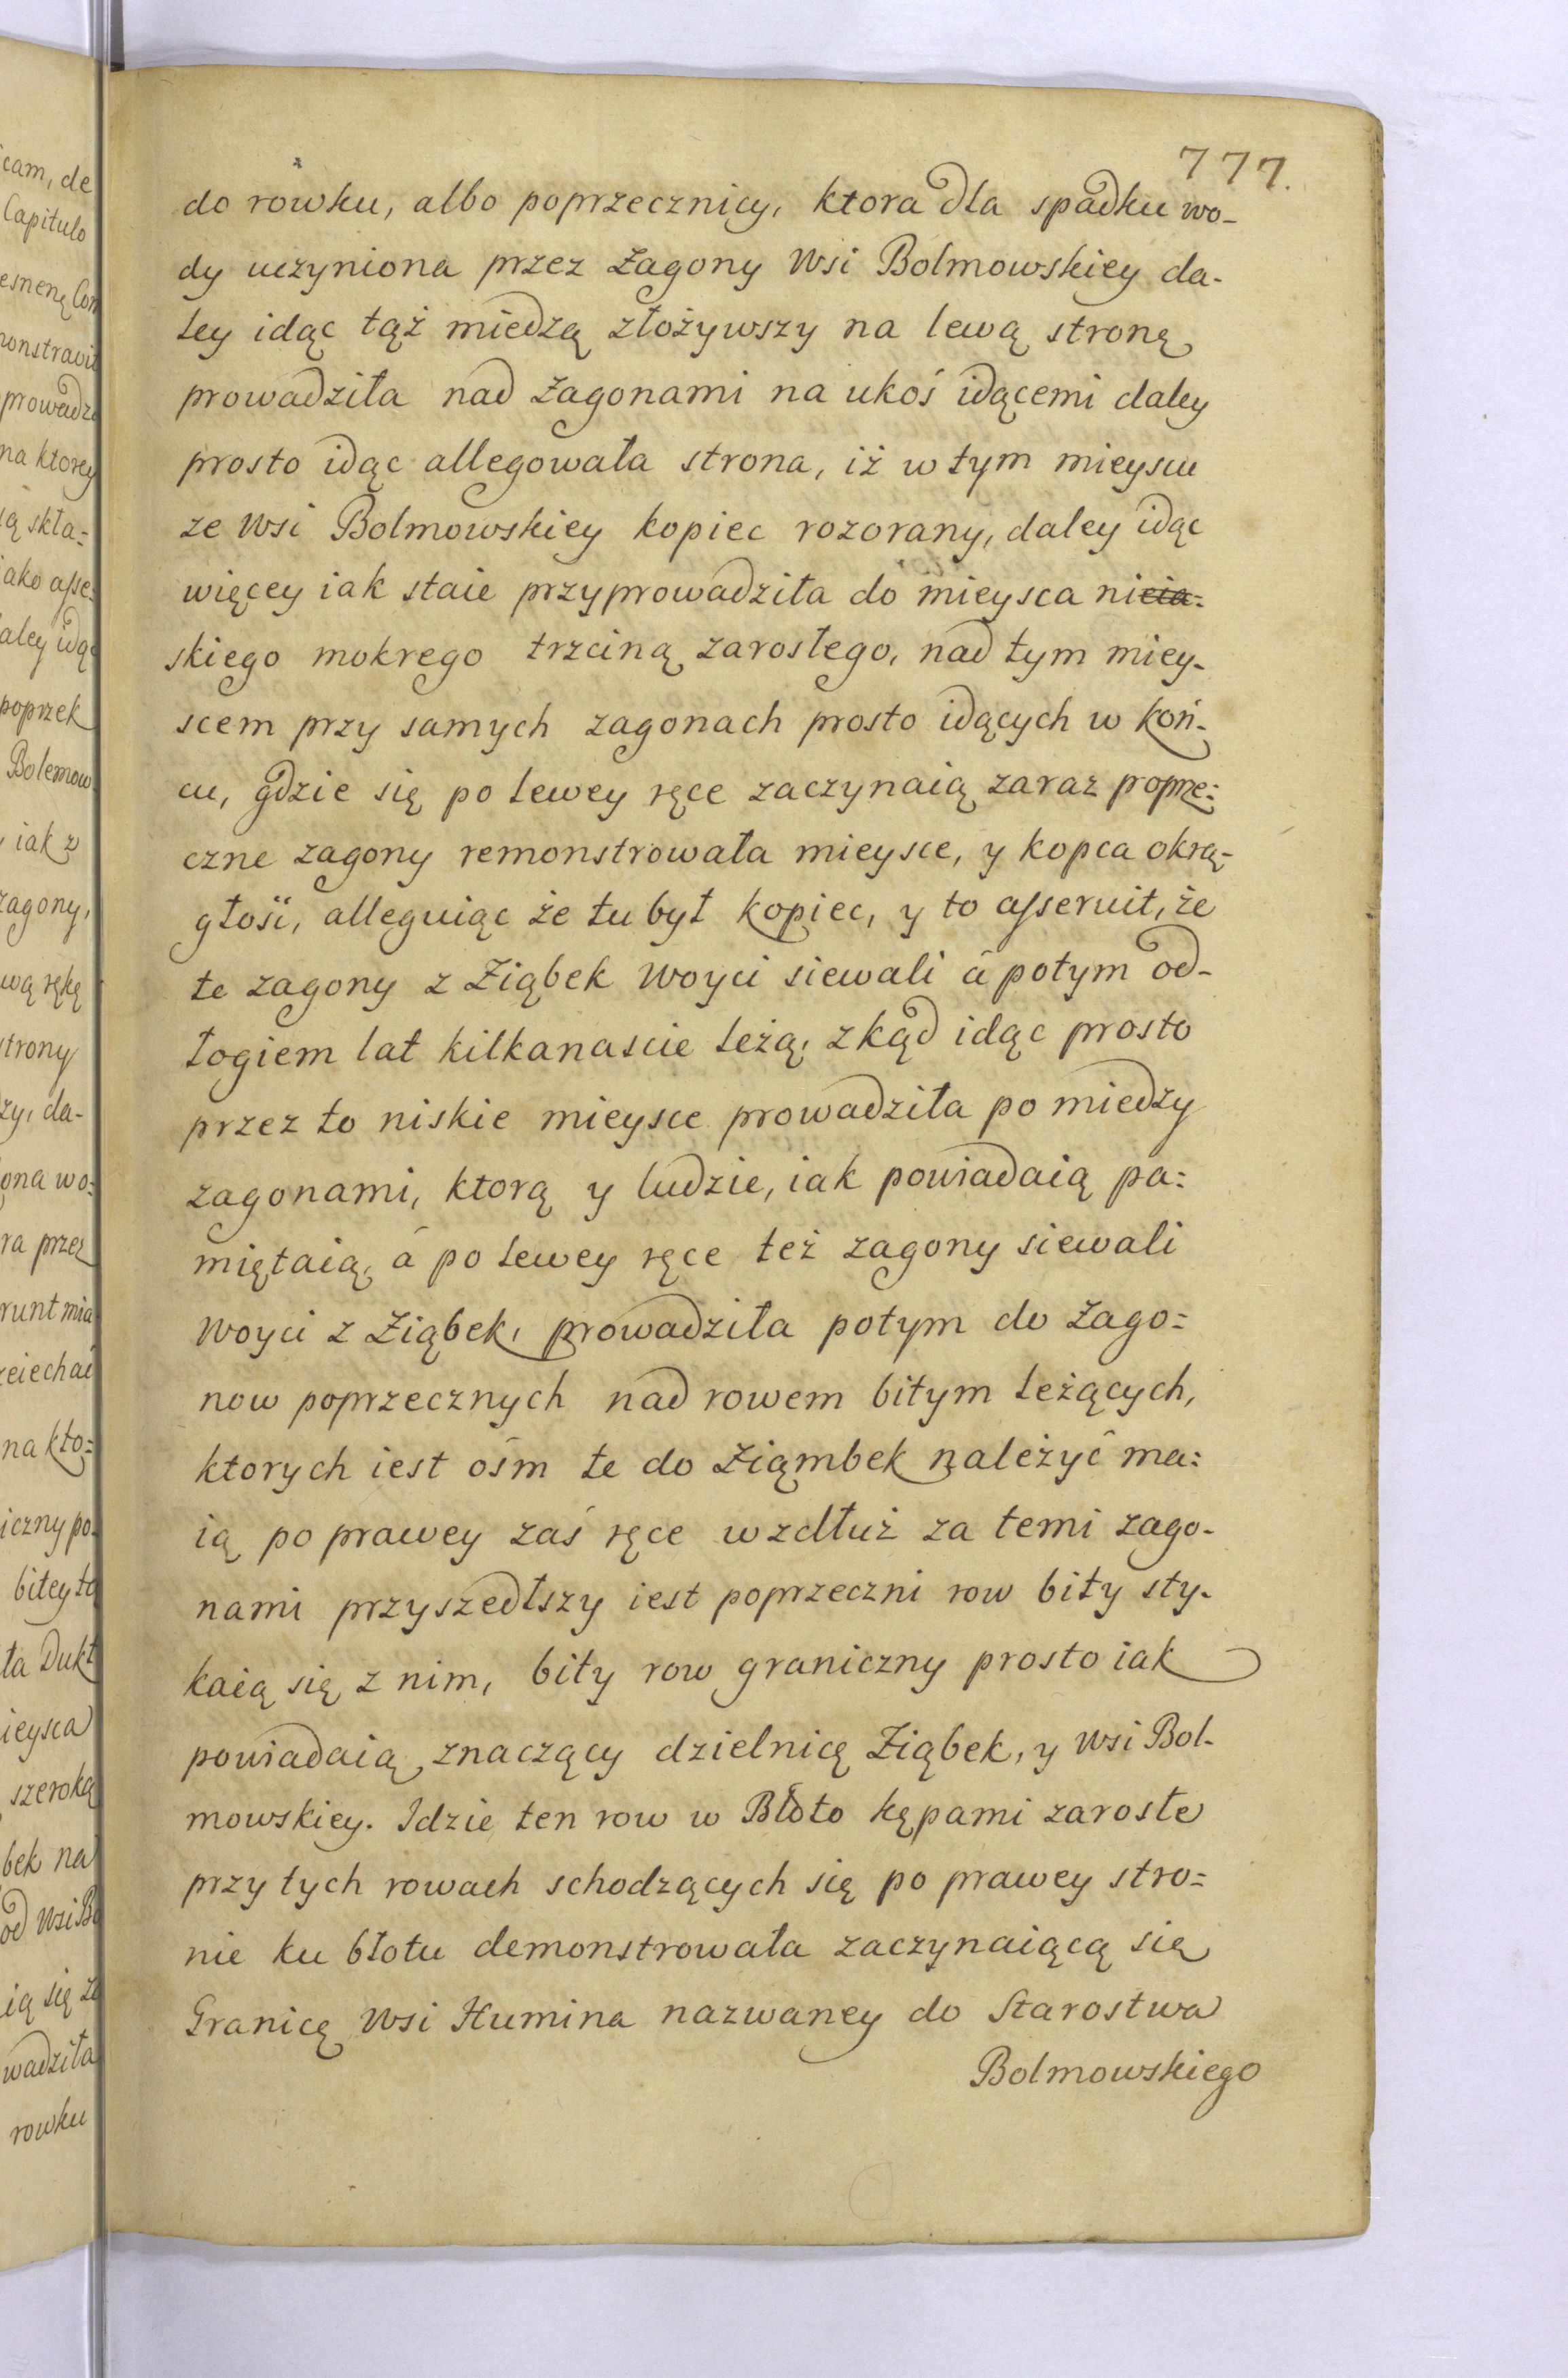 777.
do rowku, albo poprzecznicy, ktora dla spadku wo-
dy uczyniona przez zagony Wsi Bolmowskiey da-
ley idąc tąż miedzą złożywszy na lewą stronę
prowadziła nad zagonami na ukoś idącemi daley
prosto idąc allegowała strona, iż w tym mieyscu
ze Wsi Bolmowskiey kopiec rozorany, daley idąc
więcey iak staie przyprowadziła do mieysca nicia=
skiego mokrego trzciną zarosłego, nad tym miey-
scem przy samych zagonach prosto idących w koń-
cu, gdzie się po lewey ręce zaczynaią zaraz poprze=
czne zagony remonstrowała mieysce, y kopca okrą-
głości, alleguiąc że tu był kopiec, y to asseruit, że
te zagony z Ziąbek Woyci siewali á potym od-
łogiem lat kilkanascie leżą, zkąd idąc prosto
przez to niskie mieysce prowadziła po miedzy
zagonami, ktorą y ludzie, iak powiadaią pa=
miętaią, á po lewey ręce też zagony siewali
Woyci z Ziąbek, prowadziła potym do zago=
now poprzecznych nad rowem bitym leżących,
ktorych iest ośm te do Ziąmbek należyć ma=
ią po prawey zaś ręce wzdłuż za temi zago-
nami przyszedłszy iest poprzeczni row bity sty-
kaią się z nim, bity row graniczny prosto iak
powiadaią znaczący dzielnicę Ziąbek, y Wsi Bol-
mowskiey. Idzie ten row w Błoto kępami zarosłe
przy tych rowach schodzących się po prawey stro=
nie ku błotu demonstrowała zaczynaiącą się
Granicę Wsi Humina nazwaney do Starostwa
Bolmowskiego
cam, de
Capitulo
monstravit
prowadzi
na ktorey
ią skła=
iako asse=
aley idąc
poprzek
Bolemow
iak z
zagony,
wą rękę
strony
zy, da-
ona wo=
ra przez
runt mia
zeiechać
na kto=
iczny po-
bitey to
ła Dukt
ieysca
szeroką
bek na
od Wsi Bo
ią się za
wadziła
rowku